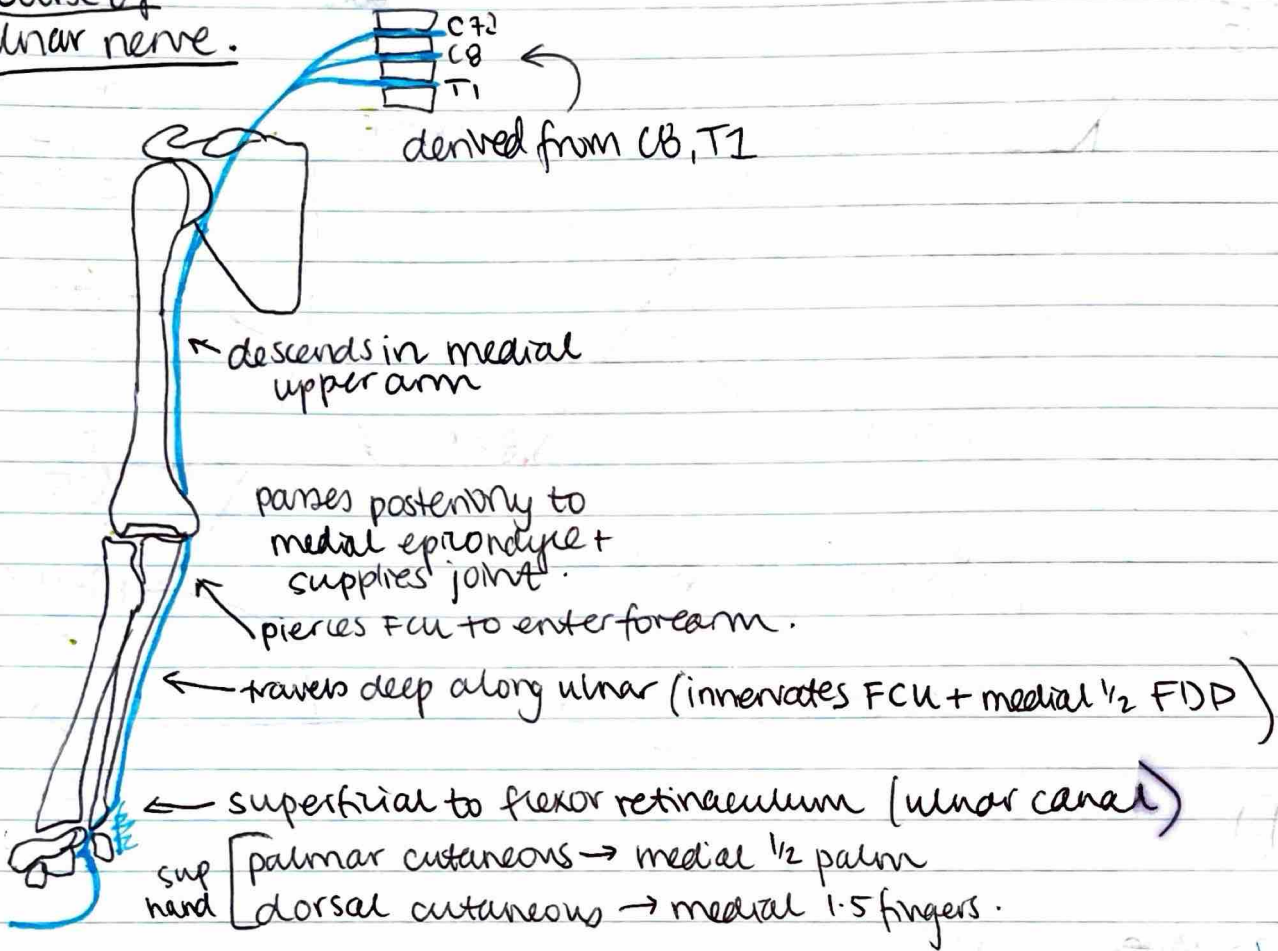 course of
ulnar nerve.
C7
C8
T1
derived from C8, T1
descends in medial
upper arm
passes posteriorly to
medial epicondyle +
supplies joint.
pierces FCU to enter forearm.
travels deep along ulnar (innervates FCU + medial 1/2 FDP)
superficial to flexor retinaculum (ulnar canal)
sup
hand
palmar cutaneous → medial 1/2 palm
dorsal cutaneous → medial 1.5 fingers.